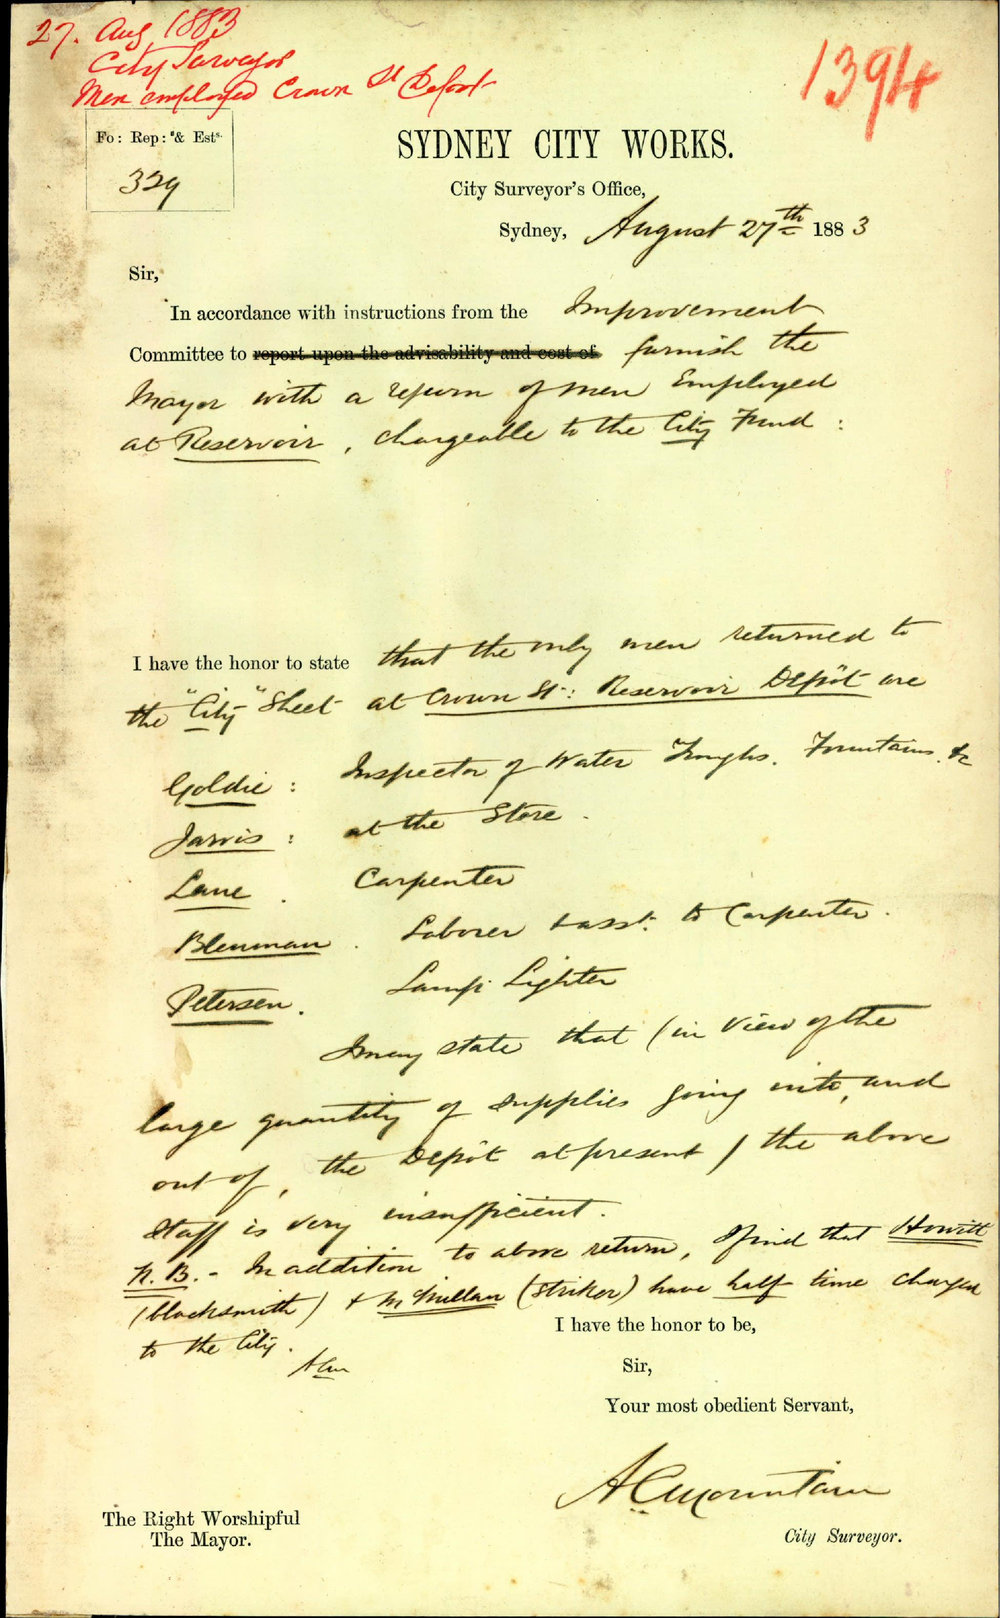 27. Aug 1883
City Surveyor
Men employed Crown St Depot
1394
Fo: Rep: & Ests.
329
SYDNEY CITY WORKS.
City Surveyor's Office,
Sydney, August 27th 1883
Sir,
In accordance with instructions from the Improvement
Committee to report upon the advisability and cost of furnish the
Mayor with a return of men Employed
at Reservoir, chargeable to the City Fund :
I have the honor to state that the only men returned to
the "City" Sheet at Crown St: Reservoir Depôt are
Goldie : Inspector of Water Troughs. Fountains. &c
Jarvis : at the Store.
Lane . Carpenter
Blenman . Laborer & asst. to Carpenter.
Petersen. Lamp Lighter
I may state that (in view of the
large quantity of supplies going into, and
out of, the Depôt at present) the above
staff is very insufficient.
N.B. - In addition to above return, I find that Howitt
(blacksmith) & McMillan (striker) have half time charged
to the City.
I have the honor to be,
Sir,
Your most obedient Servant,
A C Mountain
The Right Worshipful
The Mayor.
City Surveyor.